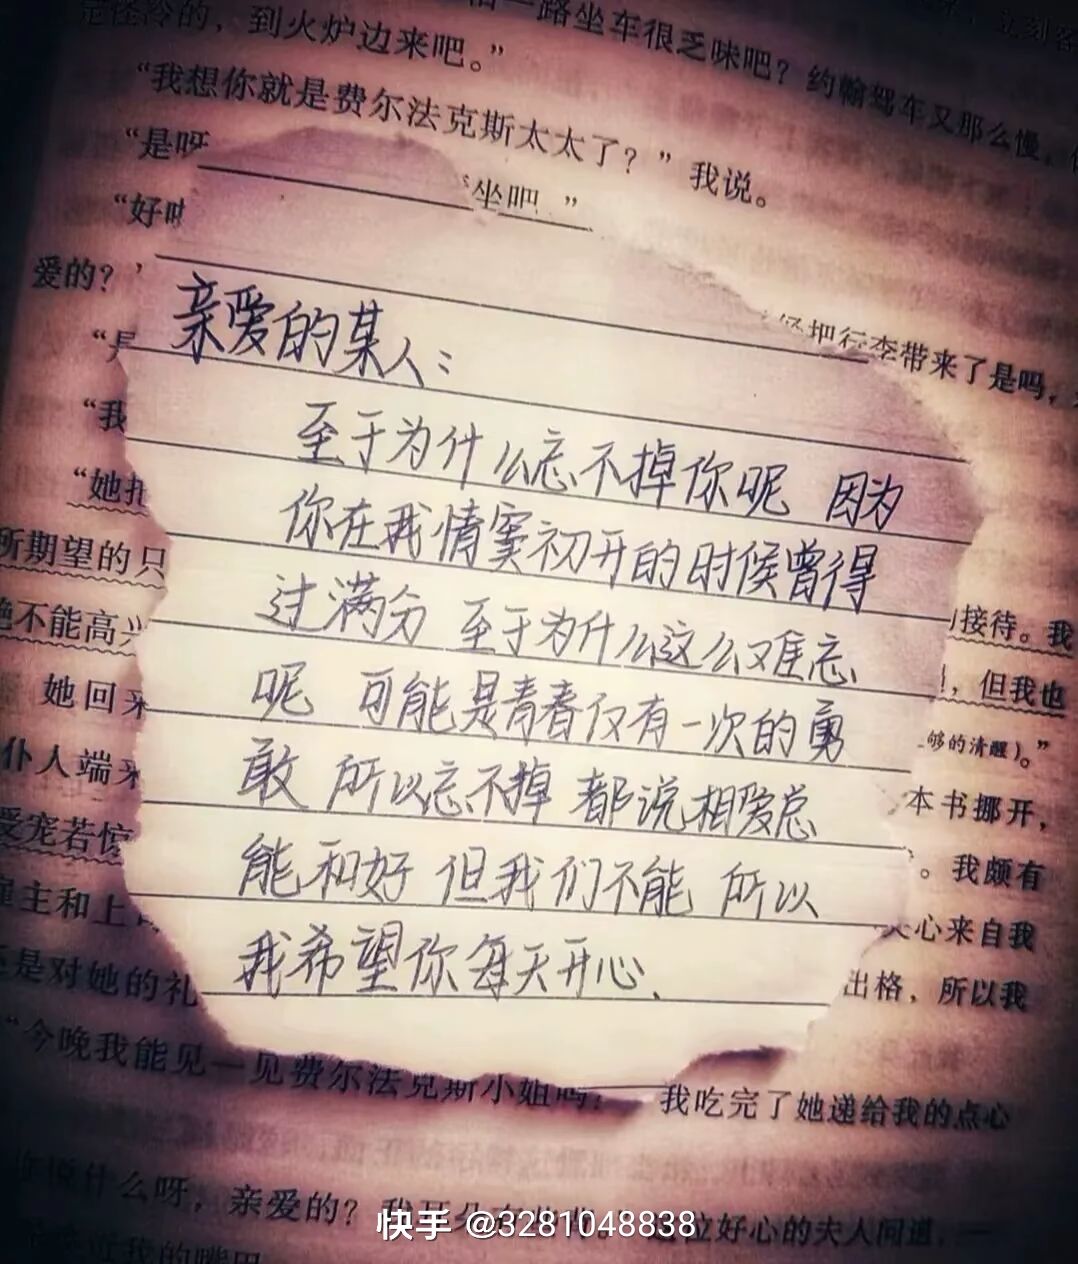 是怪冷的，到火炉边来吧。”
一路坐车很乏味吧？约翰驾车又那么慢，
“我想你就是费尔法克斯太太了？”我说。
“是呀
坐吧。”
“好
爱的？
把行李带来了是吗，
亲爱的某人：
“我
至于为什么忘不掉你呢 因为
“她把
你在我情窦初开的时候曾得
所期望的只
过满分 至于为什么这么难忘
接待。我
绝不能高兴
呢 可能是青春仅有一次的勇
，但我也
她回来
敢 所以忘不掉 都说相爱总
够的清醒）。”
仆人端来
能和好 但我们不能 所以
本书挪开，
受宠若惊
我希望你每天开心、
。我颇有
雇主和上
心来自我
是对她的礼
出格，所以我
“今晚我能见一见费尔法克斯小姐吗？
我吃完了她递给我的点心
什么呀，亲爱的？我
位好心的夫人问道，一
快手 @3281048838